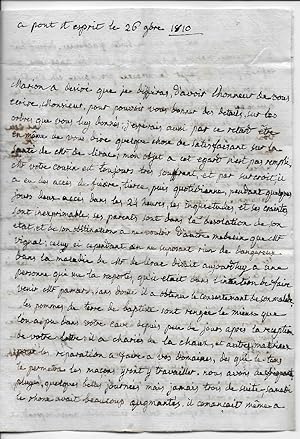 a pont st esprit le 26 9bre 1810
Marion a desiré que je differas d'avoir l'honneur de vous
ecrire, Monsieur, pour pouvoir vous donner des details, sur les
ordres que vous luy donnés, j'esperais aussi par ce retard être
en même de vous dire quelque chose de satisfaisant sur la
santé de Mr de mon objet a cet egard n'est pas rempli,
Mr votre cousin est toujours très souffrant, et par surcroit il
a eu des acces de fievre, tierce, puis quotidienne, pendant quelques
jours deux acces dans les 24 heures, ses inquietudes et ses craintes
sont inexprimables ses parents sont dans la desolation de son
état et de son obstination a ne vouloir d'autre medecin que Mr
vignal; celuy ci cependant en ne ignorant rien de dangereux
dans la maladie de Mr de disait aujourd'huy a une
personne qui me l'a raporté, qu'il etait dans l'intention de faire
venir Mr sans doute il a obtenu le consentement de son malade
les pommes de terre de baptiste sont rangées le mieux que
l'on a pu dans votre cave depuis peu de jours après la reception
de votre lettre il a charié de la chaux, et autres materiaux
pour les reparations a faire a vos domaines, dès que le tems
le permettra les maçons iront y travailler, nous avons de frequentes
pluyes, quelques belles journées mais jamais trois de suite, samedi
le rhone avait beaucoup augmenté, il comencait même a